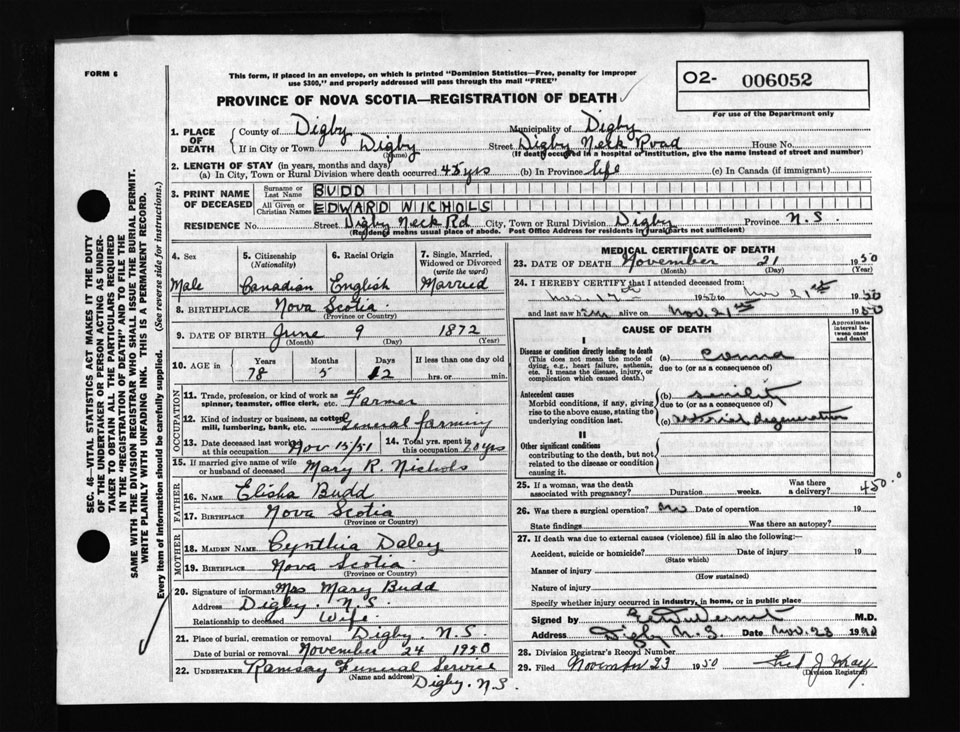 FORM 6
This form, if placed in an envelope, on which is printed "Dominion Statistics—Free, penalty for improper
use $300," and properly addressed will pass through the mail "FREE"
O2- 006052
For use of the Department only
PROVINCE OF NOVA SCOTIA—REGISTRATION OF DEATH
1. PLACE OF DEATH { County of Digby Municipality of Digby
If in City or Town Digby (Name) Street Digby Neck Road House No.
(If death occurred in a hospital or institution, give the name instead of street and number)
2. LENGTH OF STAY (in years, months and days)
(a) In City, Town or Rural Division where death occurred 45 yrs (b) In Province life (c) In Canada (if immigrant)
3. PRINT NAME OF DECEASED { Surname or Last Name BUDD
All Given or Christian Names EDWARD NICHOLS
RESIDENCE No. Street Digby Neck Rd City, Town or Rural Division Digby Province N.S.
(Residence means usual place of abode. Post Office Address for residents in rural parts not sufficient)
SEC. 46—VITAL STATISTICS ACT MAKES IT THE DUTY
OF THE UNDERTAKER OR PERSON ACTING AS UNDER-
TAKER TO OBTAIN ALL THE PARTICULARS REQUIRED
IN THE "REGISTRATION OF DEATH" AND TO FILE THE
SAME WITH THE DIVISION REGISTRAR WHO SHALL ISSUE THE BURIAL PERMIT.
WRITE PLAINLY WITH UNFADING INK. THIS IS A PERMANENT RECORD.
Every item of Information should be carefully supplied. (See reverse side for instructions.)
4. Sex Male
5. Citizenship (Nationality) Canadian
6. Racial Origin English
7. Single, Married, Widowed or Divorced (write the word) Married
8. BIRTHPLACE Nova Scotia
(Province or Country)
9. DATE OF BIRTH June 9 1872
(Month) (Day) (Year)
10. AGE in Years 78 Months 5 Days 12 If less than one day old hrs. or min.
OCCUPATION
11. Trade, profession, or kind of work as spinner, teamster, office clerk, etc. Farmer
12. Kind of industry or business, as cotton mill, lumbering, bank, etc. General farming
13. Date deceased last worked at this occupation Nov 15/51 14. Total yrs. spent in this occupation 60 yrs
15. If married give name of wife or husband of deceased Mary R. Nichols
FATHER
16. NAME Elisha Budd
17. BIRTHPLACE Nova Scotia
(Province or Country)
MOTHER
18. MAIDEN NAME Cynthia Daley
19. BIRTHPLACE Nova Scotia
(Province or Country)
20. Signature of informant Mrs Mary Budd
Address Digby. N.S.
Relationship to deceased Wife
21. Place of burial, cremation or removal Digby. N.S.
Date of burial or removal November 24 1950
22. UNDERTAKER Ramsay Funeral Service
(Name and address) Digby. N.S.
MEDICAL CERTIFICATE OF DEATH
23. DATE OF DEATH November 21 1950
(Month) (Day) (Year)
24. I HEREBY CERTIFY that I attended deceased from:
Nov. 17th 1950 to Nov 21st 1950
and last saw him alive on Nov. 21st 1950
CAUSE OF DEATH
Approximate interval between onset and death
I
Disease or condition directly leading to death
(This does not mean the mode of dying, e.g., heart failure, asthenia, etc. It means the disease, injury, or complication which caused death.)
(a) coma
due to (or as a consequence of)
Antecedent causes
Morbid conditions, if any, giving rise to the above cause, stating the underlying condition last.
(b) senility
due to (or as a consequence of)
(c) arterial degeneration
II
Other significant conditions
contributing to the death, but not related to the disease or condition causing it.
25. If a woman, was the death associated with pregnancy? Duration weeks. Was there a delivery? 450.0
26. Was there a surgical operation? no Date of operation 19
State findings Was there an autopsy?
27. If death was due to external causes (violence) fill in also the following:—
Accident, suicide or homicide? Date of injury 19
(State which)
Manner of injury
(How sustained)
Nature of injury
Specify whether injury occurred in industry, in home, or in public place
Signed by M.D.
Address Digby N.S. Date Nov. 23 1950
28. Division Registrar's Record Number
29. Filed November 23 1950 Fred J.
(Division Registrar)